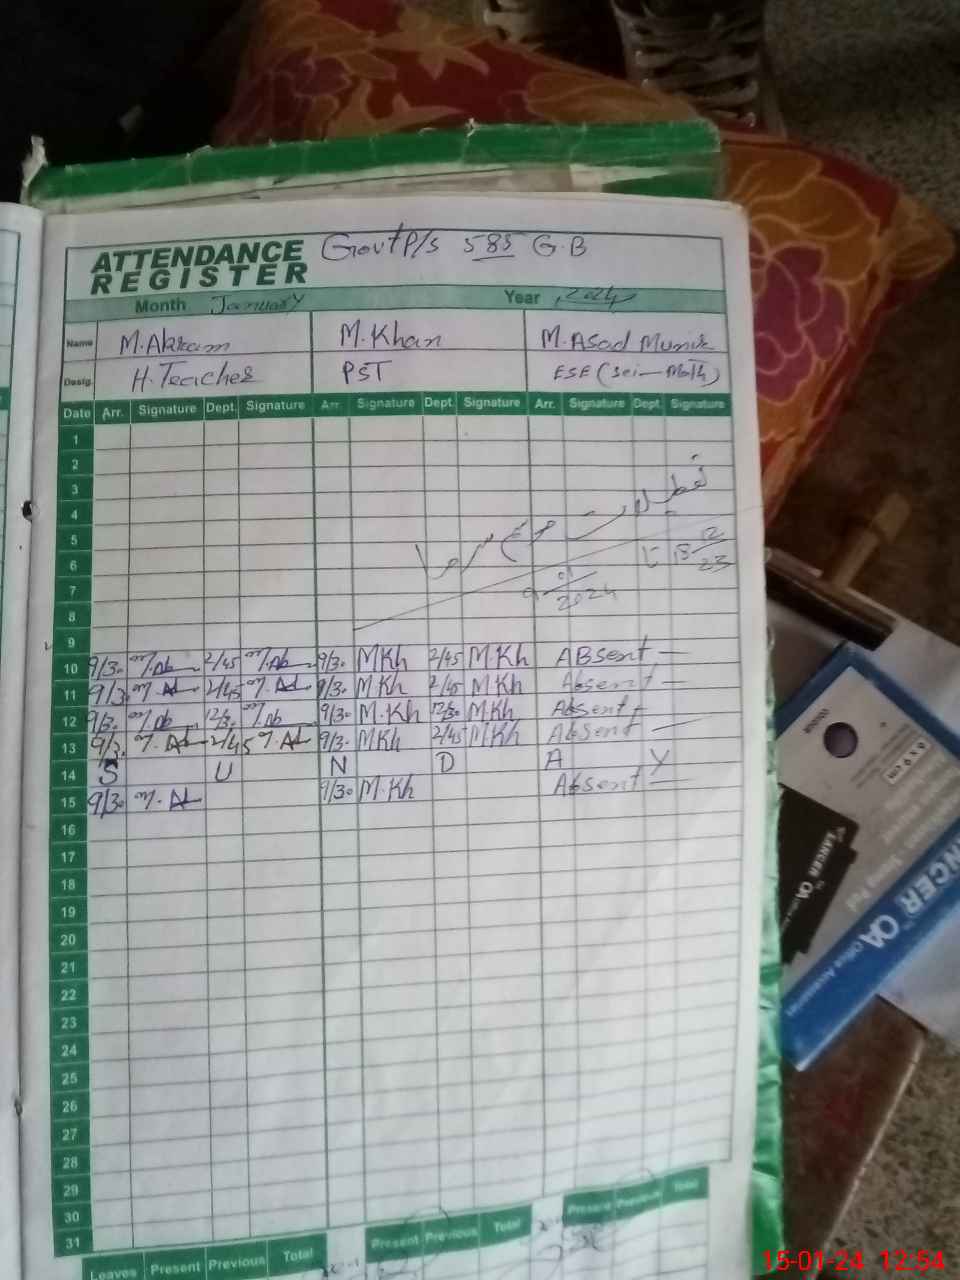 ATTENDANCE REGISTER Govt P/s 585 G.B
Month January Year 2024
Name M.Akram M.Khan M.Asad Munir
Desig. H.Teacher PST ESE (Sci-Math)
Date Arr. Signature Dept. Signature Arr. Signature Dept. Signature Arr. Signature Dept. Signature
1
2
3
4
5
6
7
8
9
10 9/30 M.Ak 2/45 M.Ak 9/30 MKh 2/45 M.Kh ABsent
11 9/30 M.Ak 2/45 M.Ak 9/30 MKh 2/45 MKh Absent
12 9/30 M.Ak 12/30 M.Ak 9/30 M.Kh 12/30 MKh Absent
13 9/30 M.Ak 2/45 M.Ak 9/30 MKh 2/45 MKh Absent
14 S U N D A Y
15 9/30 M.Ak 9/30 M.Kh Absent
16
17
18
19
20
21
22
23
24
25
26
27
28
29
30
31
Leaves Present Previous Total Present Previous Total Present Previous Total
LANCER OA Office Accessories
6 x 9 cm
15-01-24 12:54